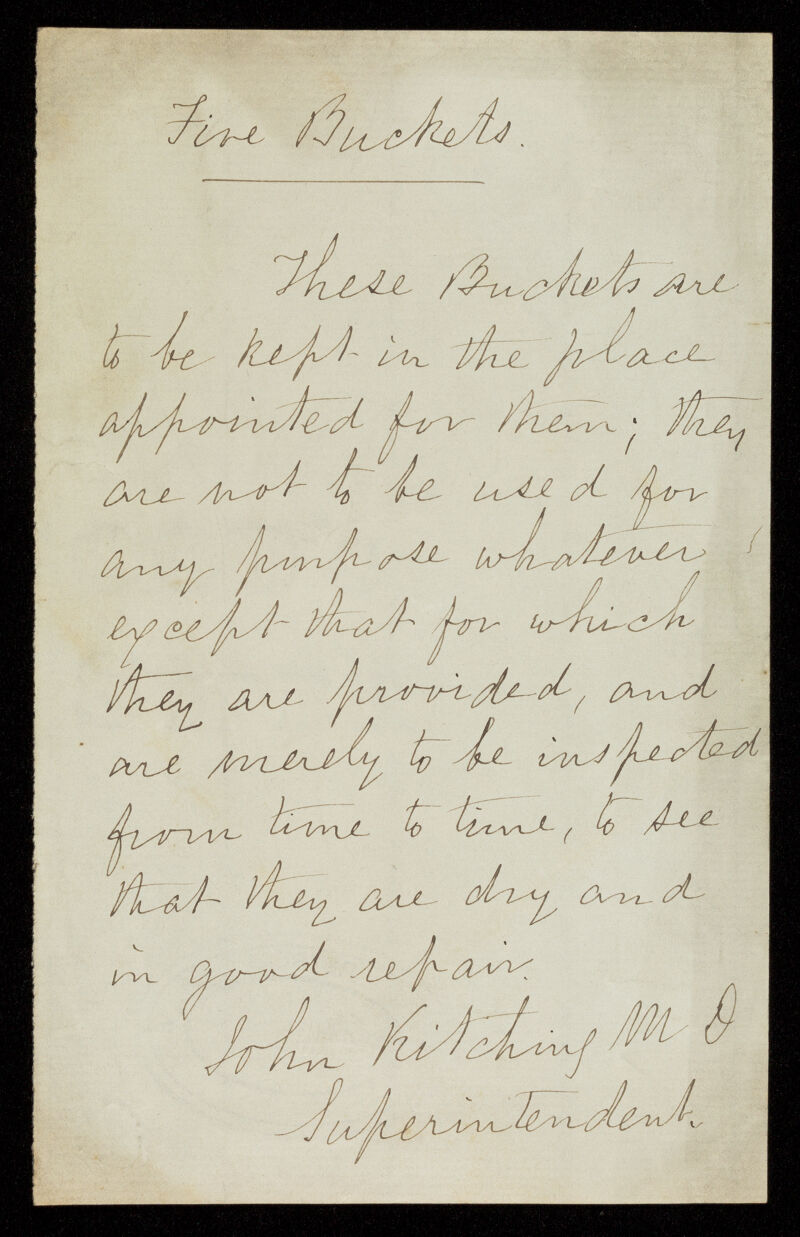 Fire Buckets.
These Buckets are
to be kept in the place
appointed for them; they
are not to be used for
any purpose whatever
except that for which
they are provided, and
are merely to be inspected
from time to time, to see
that they are dry and
in good repair.
John Kitching M D
Superintendent.